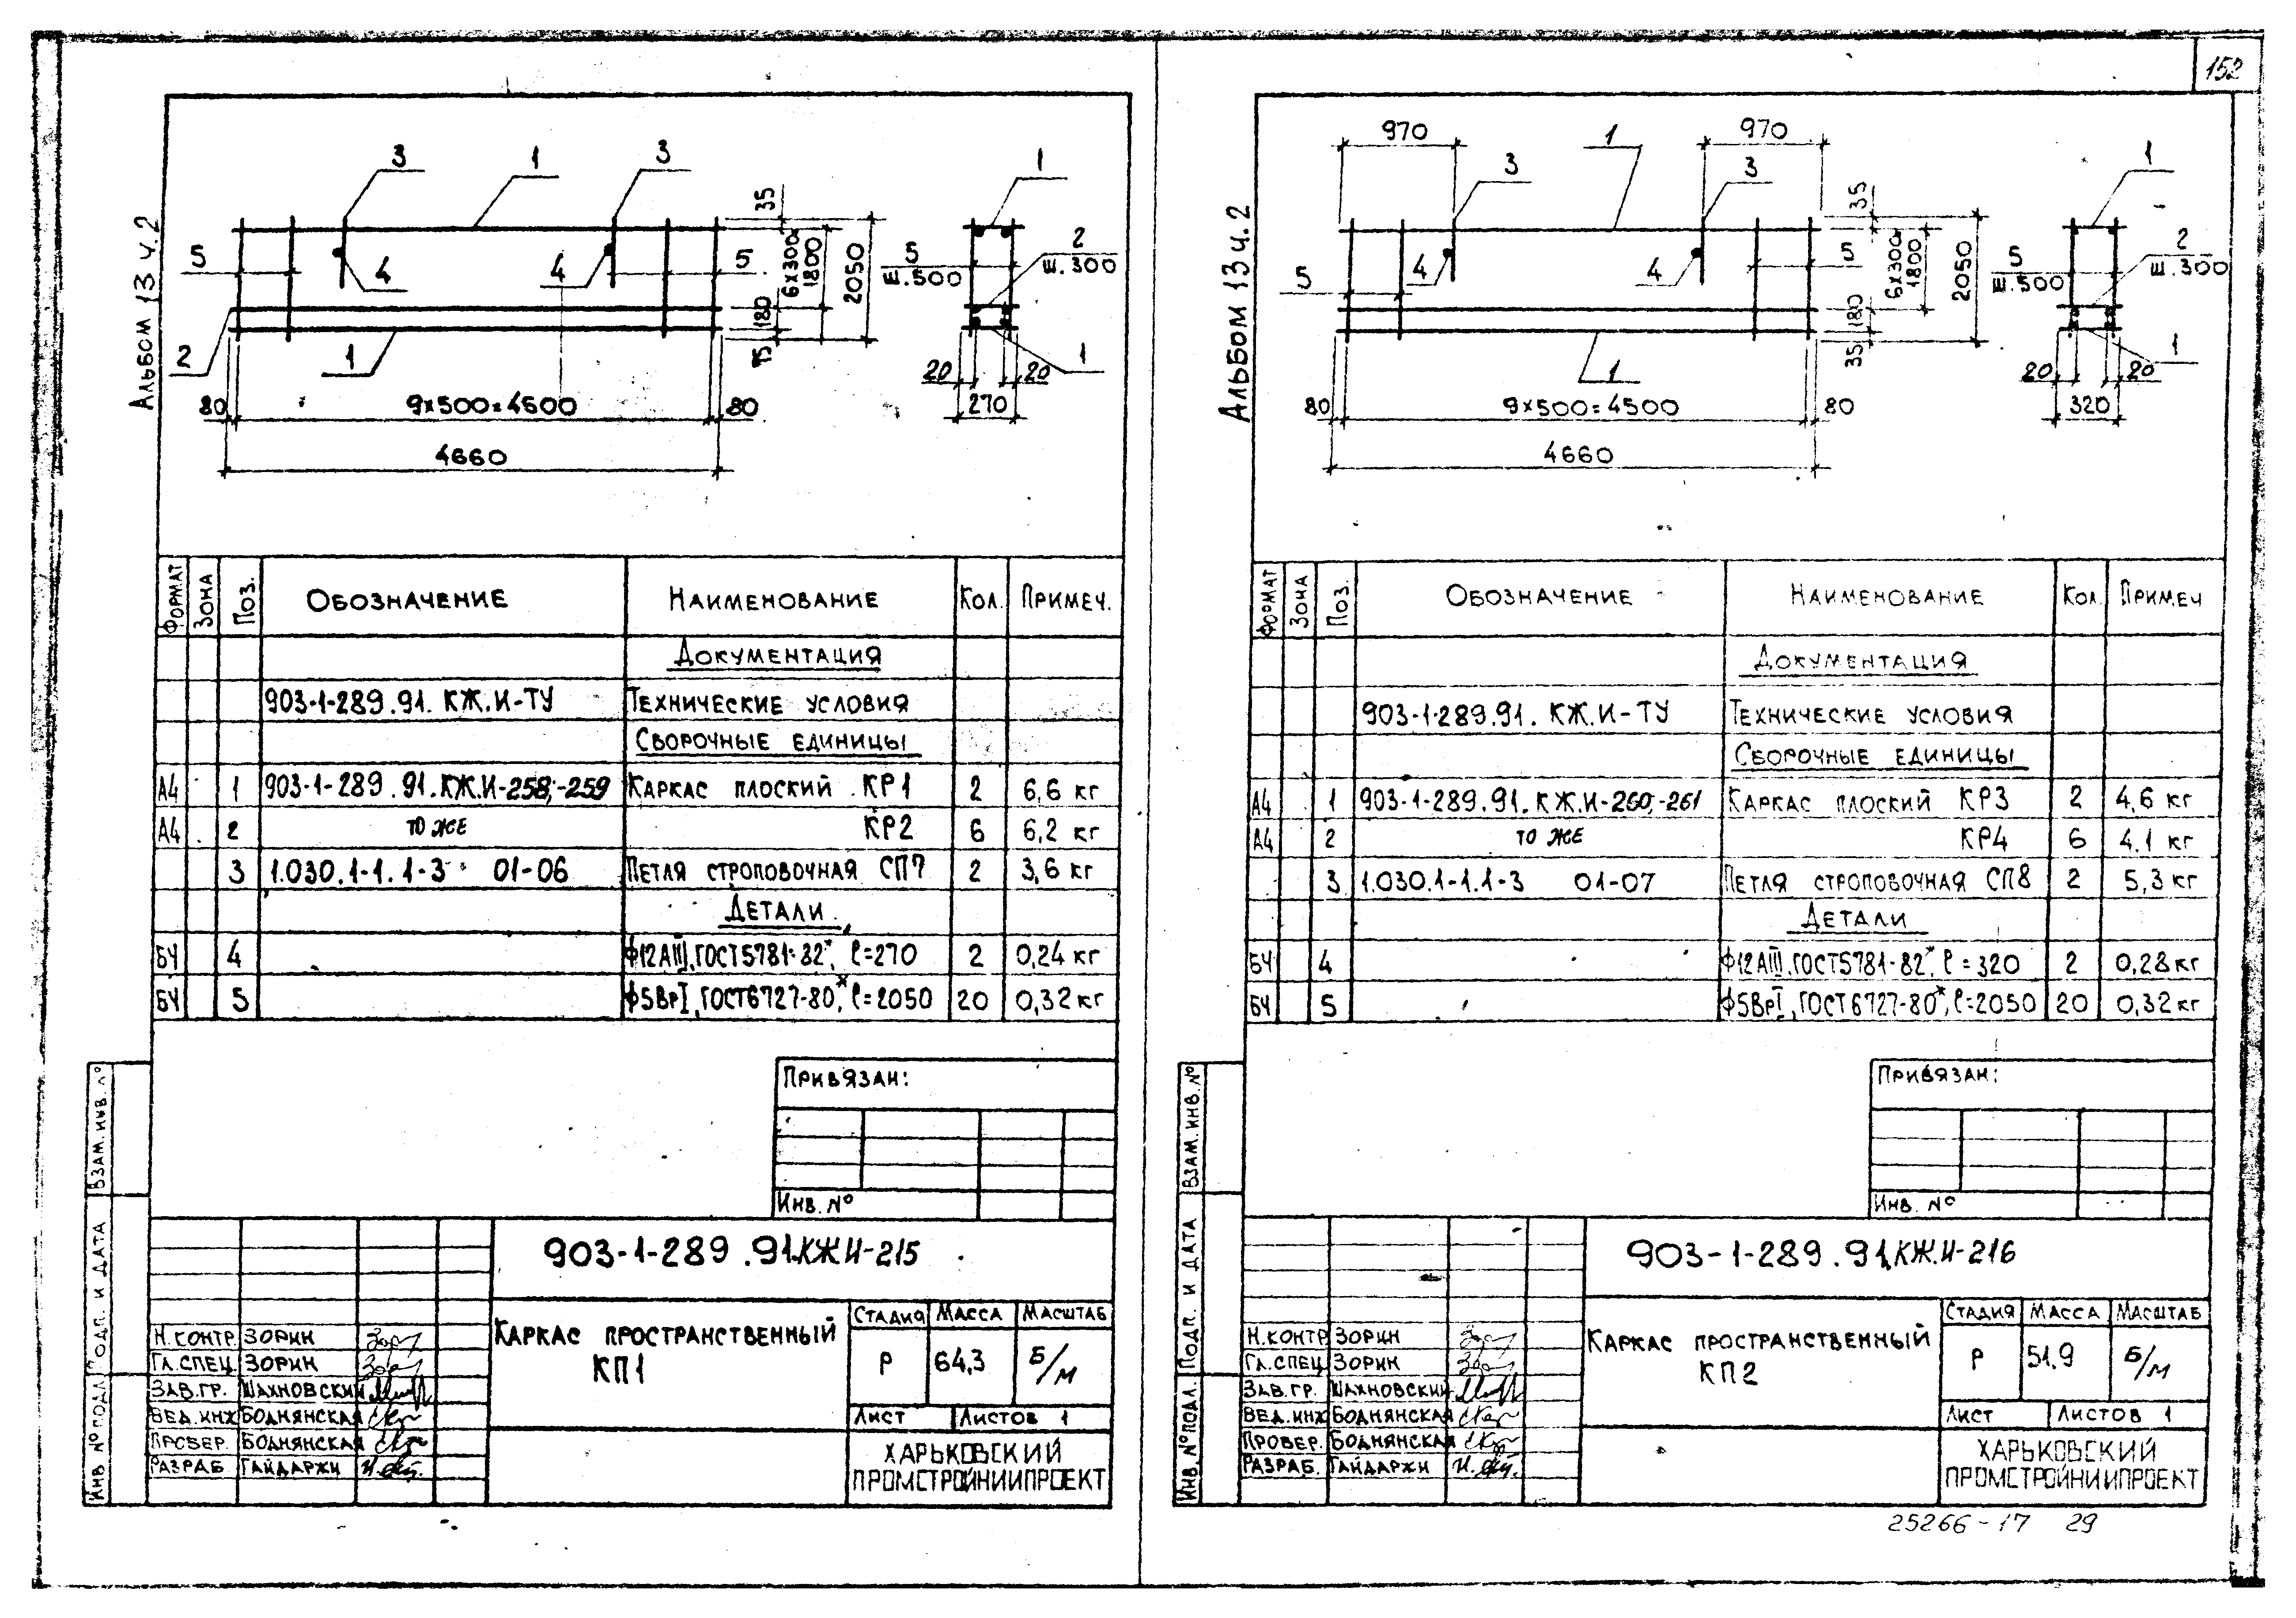 152
Альбом 13 ч.2
3
1
3
1
5
4
4
5
2
1
35
6х300=
1800
180
75
2050
5
ш.500
2
ш.300
1
20
20
270
80
9х500=4500
80
4660
Формат
Зона
Поз.
Обозначение
Наименование
Кол.
Примеч.
Документация
903-1-289.91. КЖ.И-ТУ Технические условия
Сборочные единицы
А4 1 903-1-289.91.КЖ.И-258;-259 Каркас плоский КР1 2 6,6 кг
А4 2 то же КР2 6 6,2 кг
3 1.030.1-1.1-3 01-06 Петля строповочная СП7 2 3,6 кг
Детали
БЧ 4 Ф12АIII, ГОСТ5781-82*, ℓ=270 2 0,24 кг
БЧ 5 Ф5ВрI, ГОСТ6727-80*, ℓ=2050 20 0,32 кг
Привязан:
Инв. №
Взам. инв. №
Подп. и дата
Инв. № подл.
903-1-289.91.КЖ И-215
Каркас пространственный
КП1
Стадия Масса Масштаб
Р 64,3 Б/м
Лист Листов 1
Харьковский
Промстройниипроект
Н.контр. Зорин
Гл.спец. Зорин
Зав.гр. Шахновский
Вед.инж. Боднянская
Провер. Боднянская
Разраб. Гайдаржи
Альбом 13 ч.2
970
970
1
3
3
1
5
4
4
5
1
35
6х300=
1800
180
35
2050
5
ш.500
2
ш.300
1
20
20
320
80
9х500=4500
80
4660
Формат
Зона
Поз.
Обозначение
Наименование
Кол.
Примеч
Документация
903-1-289.91. КЖ.И-ТУ Технические условия
Сборочные единицы
А4 1 903-1-289.91.КЖ.И-260;-261 Каркас плоский КР3 2 4,6 кг
А4 2 то же КР4 6 4.1 кг
3 1.030.1-1.1-3 01-07 Петля строповочная СП8 2 5,3 кг
Детали
БЧ 4 Ф12АIII, ГОСТ5781-82*, ℓ=320 2 0,28 кг
БЧ 5 Ф5ВрI, ГОСТ6727-80*, ℓ=2050 20 0,32 кг
Привязан:
Инв. №
Взам. инв. №
Подп. и дата
Инв. № подл.
903-1-289.91.КЖ.И-216
Каркас пространственный
КП2
Стадия Масса Масштаб
Р 51,9 Б/м
Лист Листов 1
Харьковский
Промстройниипроект
Н.контр Зорин
Гл.спец Зорин
Зав.гр. Шахновский
Вед.инж Боднянская
Провер. Боднянская
Разраб. Гайдаржи
25266-17 29